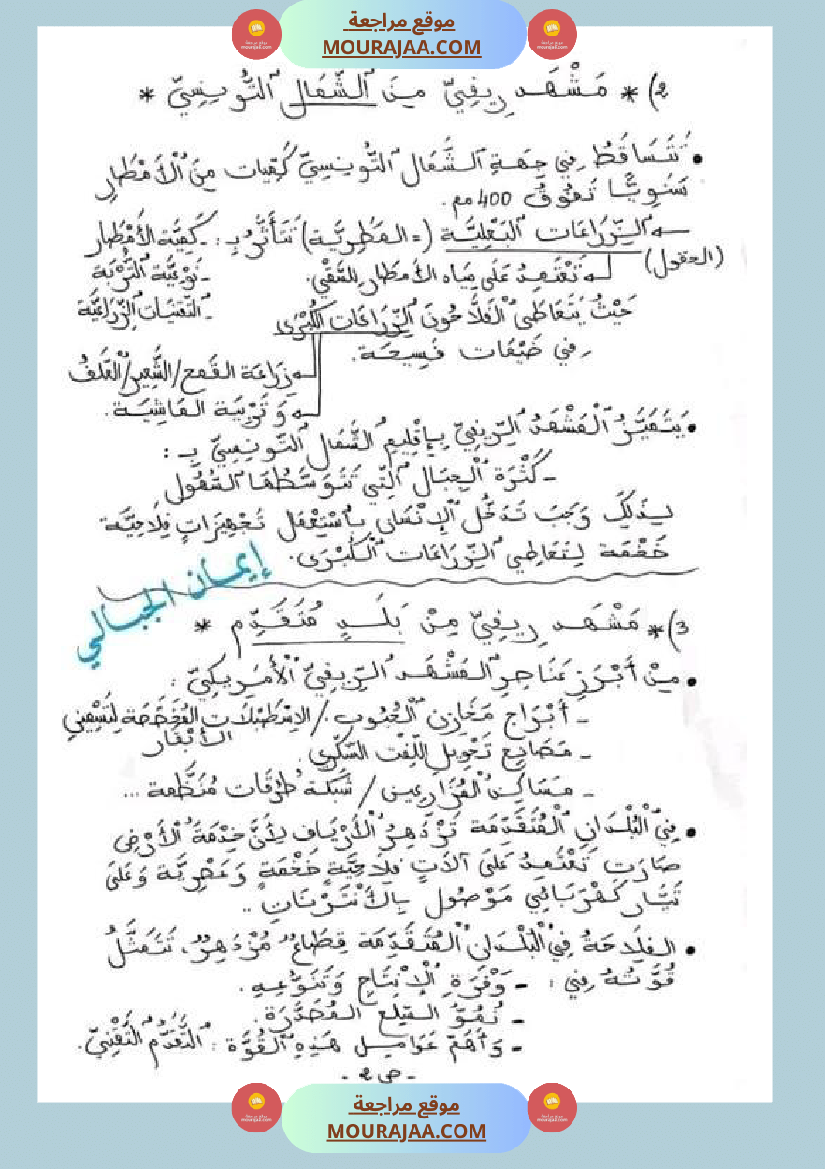 موقع مراجعة
MOURAJAA.COM
2) * مَشْهَد رِيفِيّ مِنَ ٱلشَّمَالِ ٱلتُّونِسِيّ *
• تَتَسَاقَطُ فِي جِهَةِ ٱلشَّمَالِ ٱلتُّونِسِيِّ كَمِّيَات مِنَ ٱلْأَمْطَارِ
سَنَوِيًّا تَفُوقُ 400 مم.
ٱلزِّرَاعَات ٱلْبَعْلِيَّة (= المَطَرِيَّة) تَتَأَثَّرُ بِـ : - كَمِّيَّة الأَمْطَار
(الحقول)
تَعْتَمِدُ عَلَى مِيَاه الأَمطَار لِلسَّقْيِ. - نَوْعِيَّة ٱلتُّرْبَة
حَيْثُ يَتَعَاطَى ٱلْفَلَّاحُونَ ٱلزِّرَاعَات ٱلْكُبْرَى - ٱلتِّقْنِيَات ٱلزِّرَاعِيَّة
فِي ضَيْعَات فَسِيحَة.
زِرَاعَة القَمح/الشَّعِير/ٱلْعَلَفُ
وَتَرْبِيَة المَاشِيَة.
• يَتَمَيَّزُ ٱلْمَشْهَدُ ٱلرِّيفِيّ بِإِقْلِيمِ ٱلشَّمَال ٱلتُّونِسِيّ بِـ :
- كَثْرَة ٱلْجِبَال ٱلَّتِي تَتَوَسَّطُهَا ٱلسُّهُول
لِذَلِكَ وَجَبَ تَدَخُّل ٱلْإِنْسَان بِٱسْتِعْمَال تَجْهِيزَاتٍ فِلَاحِيَّة
ضَخْمَة لِتَعَاطِي ٱلزِّرَاعَات ٱلْكُبْرَى.
إيمان الجبالي
3) * مَشْهَد رِيفِيّ مِنْ بَلَدٍ مُتَقَدِّم *
• مِنْ أَبْرَزِ عَنَاصِر ٱلْمَشْهَد ٱلرِّيفِيّ ٱلْأَمْرِيكِيّ :
- أَبْرَاج مَخَازِن ٱلْحُبُوب / الإِسْطَبْلَات المُخَصَّصَة لِتَسْمِينِ
الأَبْقَار
- مَصَانِع تَحْوِيل اللِّفْت السُّكَّرِي.
- مَسَاكِن ٱلْمُزَارِعِين / شَبَكَة طُرُقَات مُنَظَّمة ...
• فِي ٱلْبُلْدَانِ ٱلْمُتَقَدِّمَة تَزْدَهِرُ ٱلْأَرْيَاف لِأَنَّ خِدْمَةَ ٱلْأَرْضِ
صَارَت تَعْتَمِدُ عَلَى آلَاتٍ فِلَاحِيَّة ضَخْمَةٍ وَعَصْرِيَّة وَعَلَى
تَيَّار كَهْرَبَائِي مَوْصُول بِالأَنْتَرْنَاتِ ..
• الفِلَاحَةُ فِي ٱلْبُلْدَانِ ٱلْمُتَقَدِّمَة قِطَاعٌ مُزْدَهِرٌ، تَتَمَثَّلُ
قُوَّتُهُ فِي : - وَفْرَةِ ٱلْإِنْتَاجِ وَتَنَوُّعِهِ.
- نُمُوّ السِّلَع المُصَدَّرَة.
- وَأَهَمّ عَوَامِل هَذِهِ ٱلْقُوَّة : ٱلتَّقَدُّمُ ٱلتِّقْنِيّ.
- ص 2 -
موقع مراجعة
MOURAJAA.COM